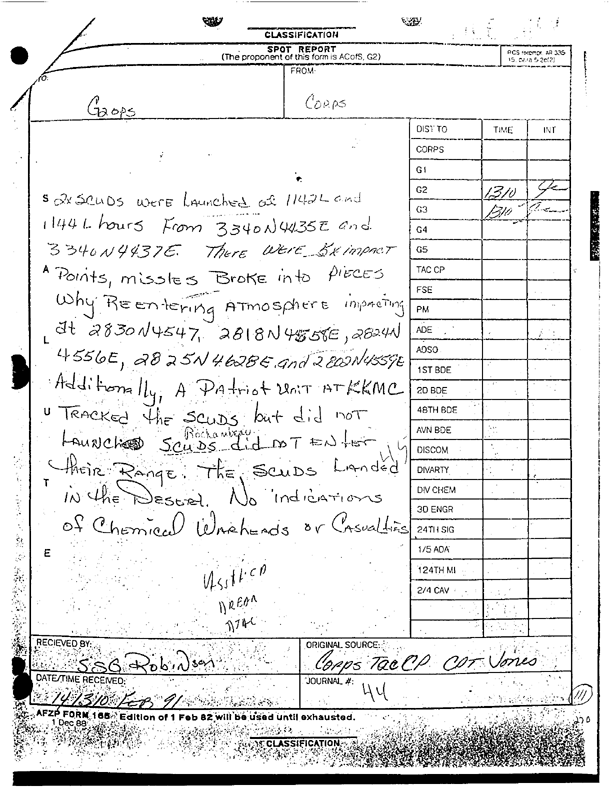 CLASSIFICATION
SPOT REPORT
(The proponent of this form is ACofS, G2)
TO:
G2OPS
FROM:
CORPS
DIST TO TIME INT
CORPS
G1
G2 1310
G3 1310
G4
G5
TAC CP
FSE
PM
ADE
ADSO
1ST BDE
2D BDE
48TH BDE
AVN BDE
DISCOM
DIVARTY
DIV CHEM
3D ENGR
24TH SIG
1/5 ADA
124TH MI
2/4 CAV
S 2x SCUDS WERE LAUNCHED at 1142L and
1144L hours From 3340N4435E and
3340N4437E. THERE WERE 5x impact
A Points, missles Broke into PIECES
Why REentering ATMOSPHERE impacting
L at 2830N4547, 2818N4558E, 2824N
4556E, 2825N4628E and 2802N4559E
Additionally, A Patriot Unit AT KKMC
U TRACKED the SCUDS but did not
LAUNCHED SCUDS did not ENTER
their RANGE. The SCUDS Landed
T in the Desert. No indications
of Chemical Warheads or Casualties
E
RECIEVED BY:
SSG Robinson
ORIGINAL SOURCE:
Corps TAC CP CPT Jones
DATE/TIME RECEIVED:
141310 FEB 91
JOURNAL #:
44
AFZP FORM 165 Edition of 1 Feb 82 will be used until exhausted.
1 Dec 88
CLASSIFICATION